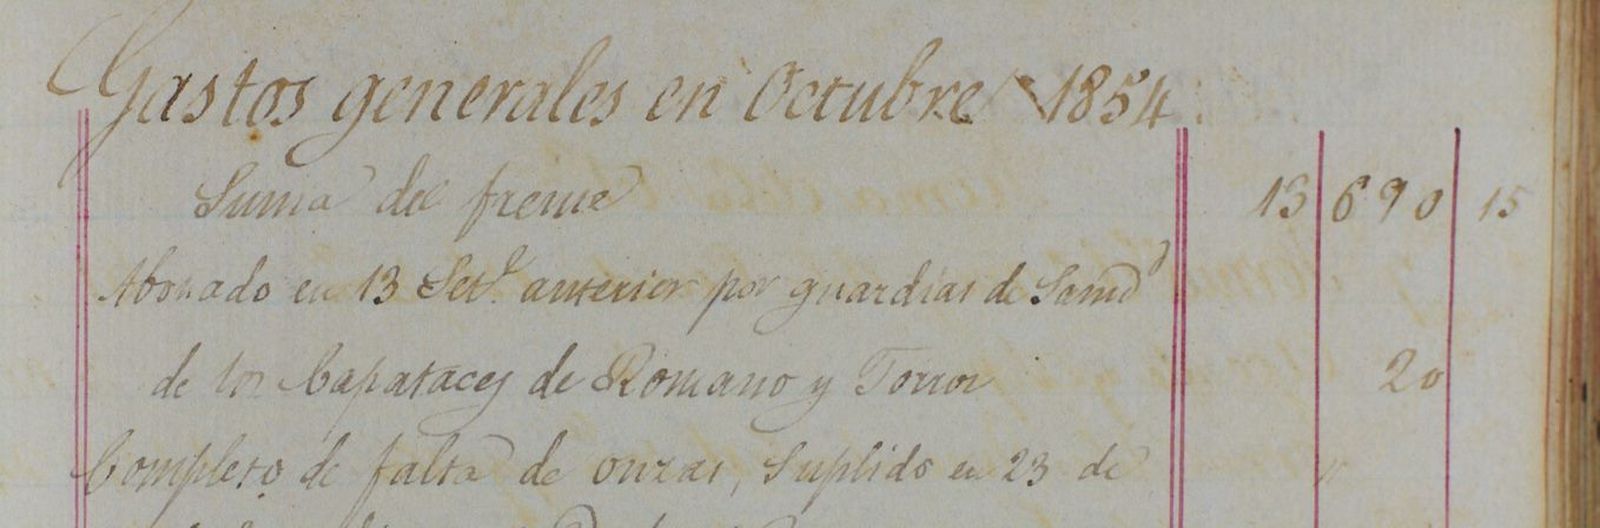 Gastos generales en Octubre 1854.
Suma del frente 13 690 15
Abonado en 13 Set.e anterior por guardias de Sanid.d
de los Capataces de Romano y Torres 20
Completo de falta de onzas, suplido en 23 de "